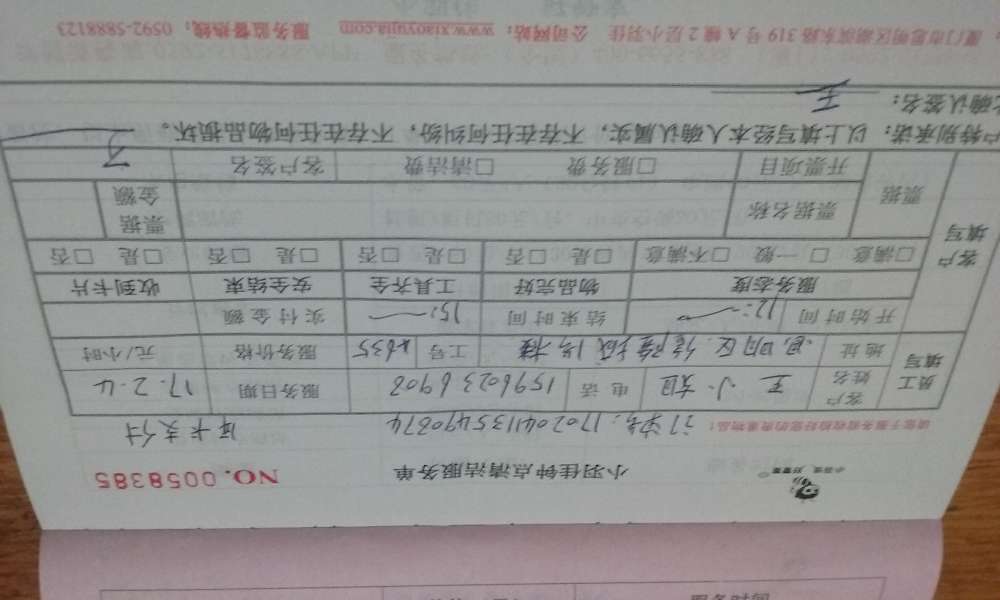 小羽佳钟点清洁服务单
NO.0058385
请您于服务前收拾好您的贵重物品!
订单号:17020411354902874 年卡支付
员工填写
客户姓名 王小姐 电话 15960236908 服务日期 17.2.4
地址 思明区 工号 4635 服务价格 元/小时
开始时间 12:— 结束时间 15:— 实付金额
客户填写
服务态度 物品完好 工具齐全 安全结束 收到卡片
□满意 □一般 □不满意 □是 □否 □是 □否 □是 □否 □是 □否
票据 票据名称 票据金额
开票项目 □服务费 □清洁费 客户签名
户特别承诺:以上填写经本人确认属实,不存在任何纠纷,不存在任何物品损坏。
确认签名: 王
厦门市思明区湖滨东路319号A幢2层小羽佳 公司网站:www.xiaoyujia.com 服务监督热线:0592-5888123